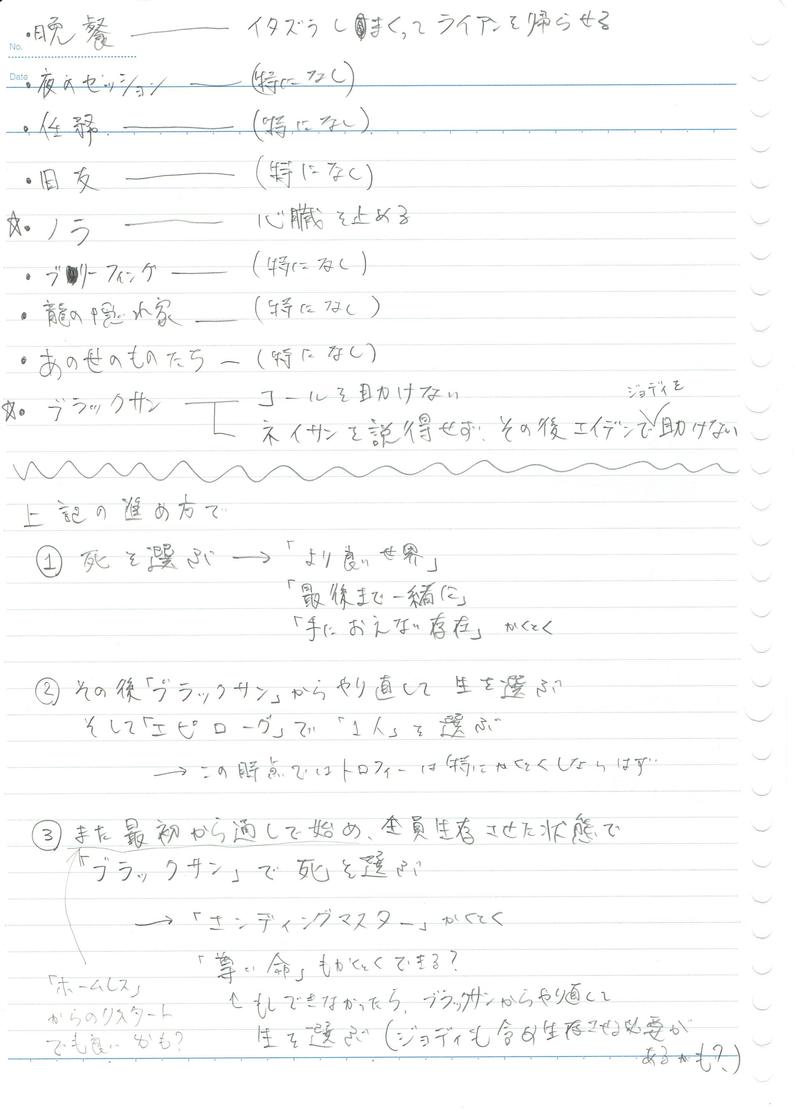 No.
・晩餐 ―― イタズラしまくってライアンを帰らせる
Date
・夜のセッション ―― (特になし)
・任務 ―― (特になし)
・旧友 ―― (特になし)
☆・ノラ ―― 心臓を止める
・ブリーフィング ―― (特になし)
・龍の隠れ家 ―― (特になし)
・あのせのものたち ― (特になし)
☆・ブラックサン ―― コールを助けない
ネイサンを説得せず、その後エイデンでジョディを助けない
上記の進め方で
① 死を選ぶ → 「より良い世界」
「最後まで一緒に」
「手におえない存在」かくとく
② その後「ブラックサン」からやり直して 生を選ぶ
そして「エピローグ」で 「1人」を選ぶ
→ この時点ではトロフィーは特にかくとくしないはず
③ また最初から通しで始め、全員生存させた状態で
「ブラックサン」で死を選ぶ
→ 「エンディングマスター」かくとく
「尊い命」もかくとくできる?
↑ もしできなかったら、ブラックサンからやり直して
生を選ぶ (ジョディも含め生存させる必要が
あるかも?)
「ホームレス」
からのリスタート
でも良いかも?